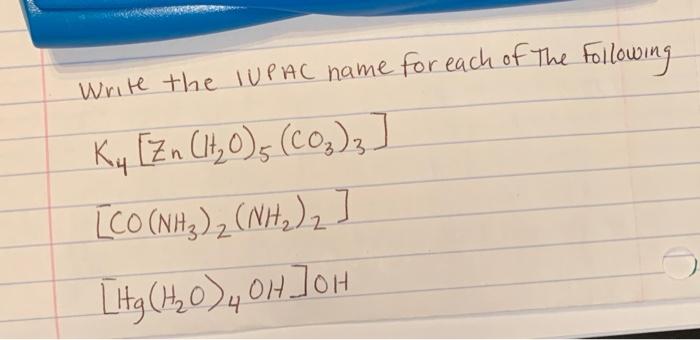 Write the IUPAC name for each of The Following
K₄ [Zn (H₂O)₅ (CO₃)₃]
[CO(NH₃)₂(NH₂)₂]
[Hg(H₂O)₄OH]OH